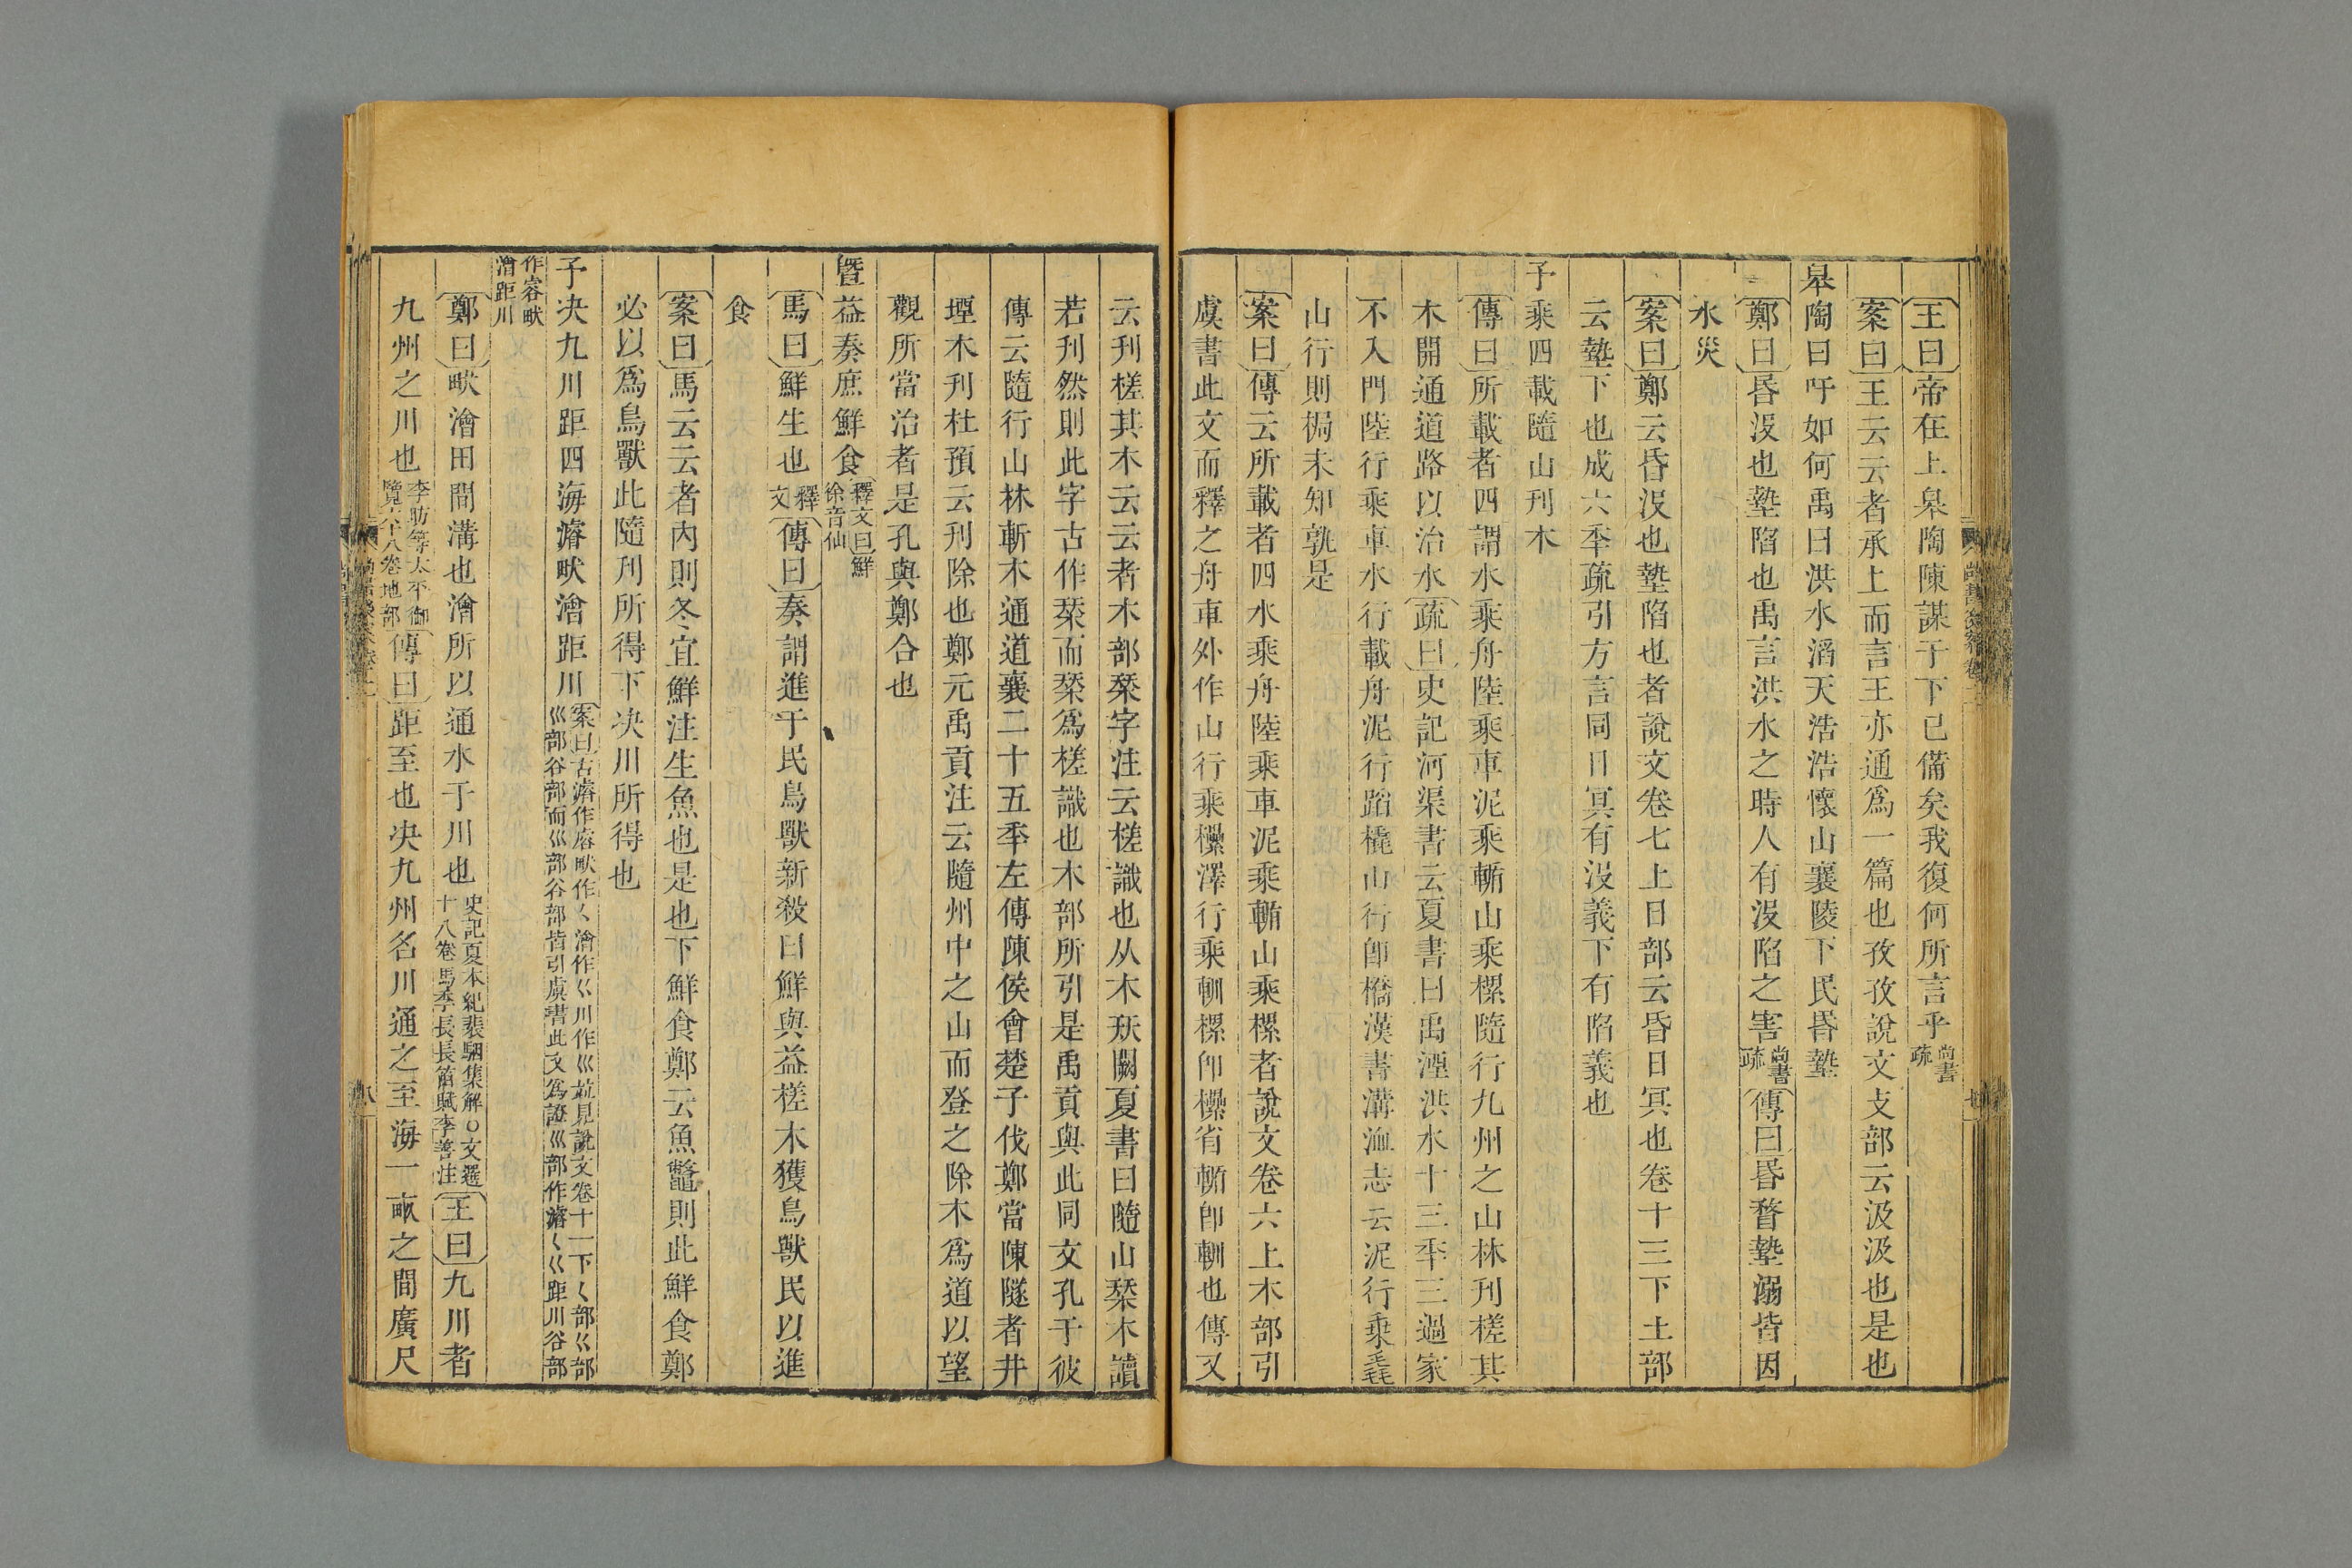 王曰帝在上皋陶陳謀于下已備矣我復何所言乎尚書疏
案曰王云云者承上而言王亦通爲一篇也孜孜說文攴部云汲汲也是也
皋陶曰吁如何禹曰洪水滔天浩浩懷山襄陵下民昬墊
鄭曰昬沒也墊陷也禹言洪水之時人有沒陷之害尚書疏傳曰昬瞀墊溺皆因
水災
案曰鄭云昏沒也墊陷也者說文卷七上日部云昏日冥也卷十三下土部
云墊下也成六秊疏引方言同日冥有沒義下有陷義也
予乘四載隨山刋木
傳曰所載者四謂水乘舟陸乘車泥乘輴山乘樏隨行九州之山林刋槎其
木開通道路以治水疏曰史記河渠書云夏書曰禹湮洪水十三秊三過家
不入門陸行乘車水行載舟泥行蹈橇山行卽橋漢書溝洫志云泥行乗毳
山行則梮未知孰是
案曰傳云所載者四水乘舟陸乘車泥乘輴山乘樏者說文卷六上木部引
虞書此文而釋之舟車外作山行乘欙澤行乘䡅樏卽欙省輴卽䡅也傳又
云刋槎其木云云者木部栞字注云槎識也从木㺿闕夏書曰隨山栞木讀
若刋然則此字古作栞而栞爲槎識也木部所引是禹貢與此同文孔于彼
傳云隨行山林斬木通道襄二十五秊左傳陳侯會楚子伐鄭當陳隧者井
堙木刋杜預云刋除也鄭元禹貢注云隨州中之山而登之除木爲道以望
觀所當治者是孔與鄭合也
曁益奏庶鮮食釋文曰鮮徐音仙
馬曰鮮生也釋文傳曰奏謂進于民鳥獸新殺曰鮮與益槎木獲鳥獸民以進
食
案曰馬云云者內則冬宜鮮注生魚也是也下鮮食鄭云魚鼈則此鮮食鄭
必以爲鳥獸此隨刋所得下决川所得也
予决九川距四海濬畎澮距川案曰古濬作㕡畎作𡿨澮作巜川作巛並見說文卷十一下𡿨部巜部巛部谷部而巜部谷部皆引虞書此文爲證巜部作濬𡿨巜距川谷部
作㕡畎澮距川
鄭曰畎澮田間溝也澮所以通水于川也史記夏本紀裴駰集解○文選十八卷馬季長長笛賦李善注王曰九川者
九州之川也李昉等太平御覽六十八卷地部傳曰距至也决九州名川通之至海一畝之間廣尺